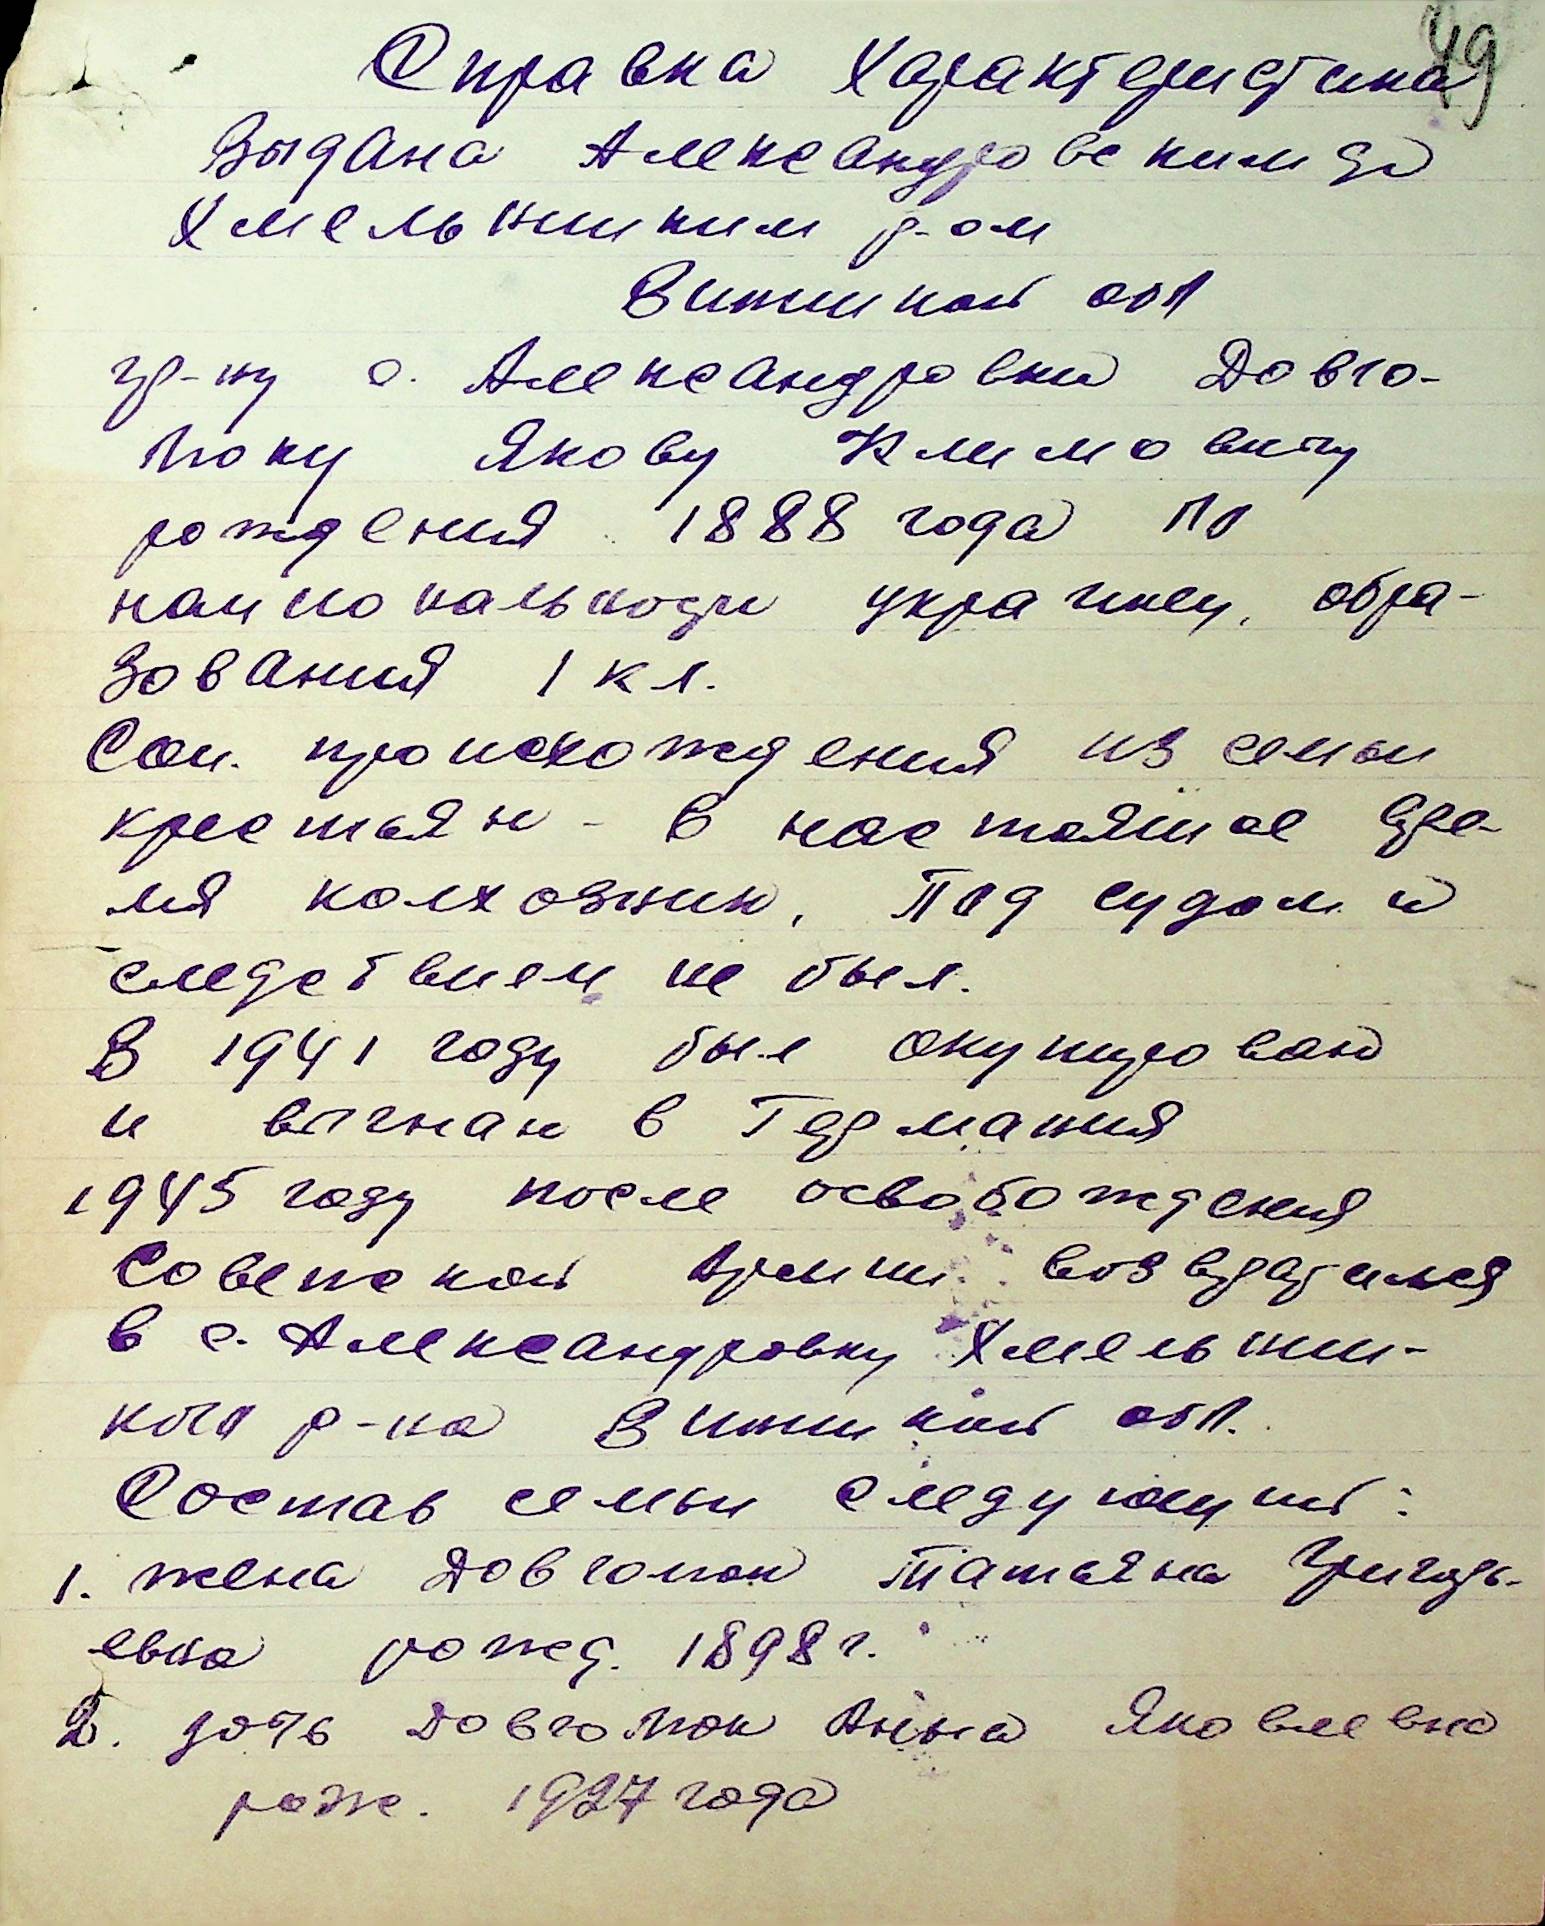 49
Справка Характеристика
Выдана Александровским с/с
Хмельницким р-ом
Виницкой обл
гр-ну с. Александровки Довго-
люку Якову Климовичу
рождения 1888 года по
национальности украинец, обра-
зования 1 кл.
Соц. происхождения из семьи
крестьян - в настоящое вре-
мя колхозник, Под судом и
следствием не был.
В 1941 году был окупирован
и выгнан в Германия
1945 году после освобождения
Советской Армии возвратился
в с. Александровку Хмельниц-
кого р-на Виницкой обл.
Состав семьи следующий:
1. жена Довголюк Татьяна Григорь-
евна рожд. 1898 г.
2. дочь Довголюк Анна Яковлевна
рож. 1927 года